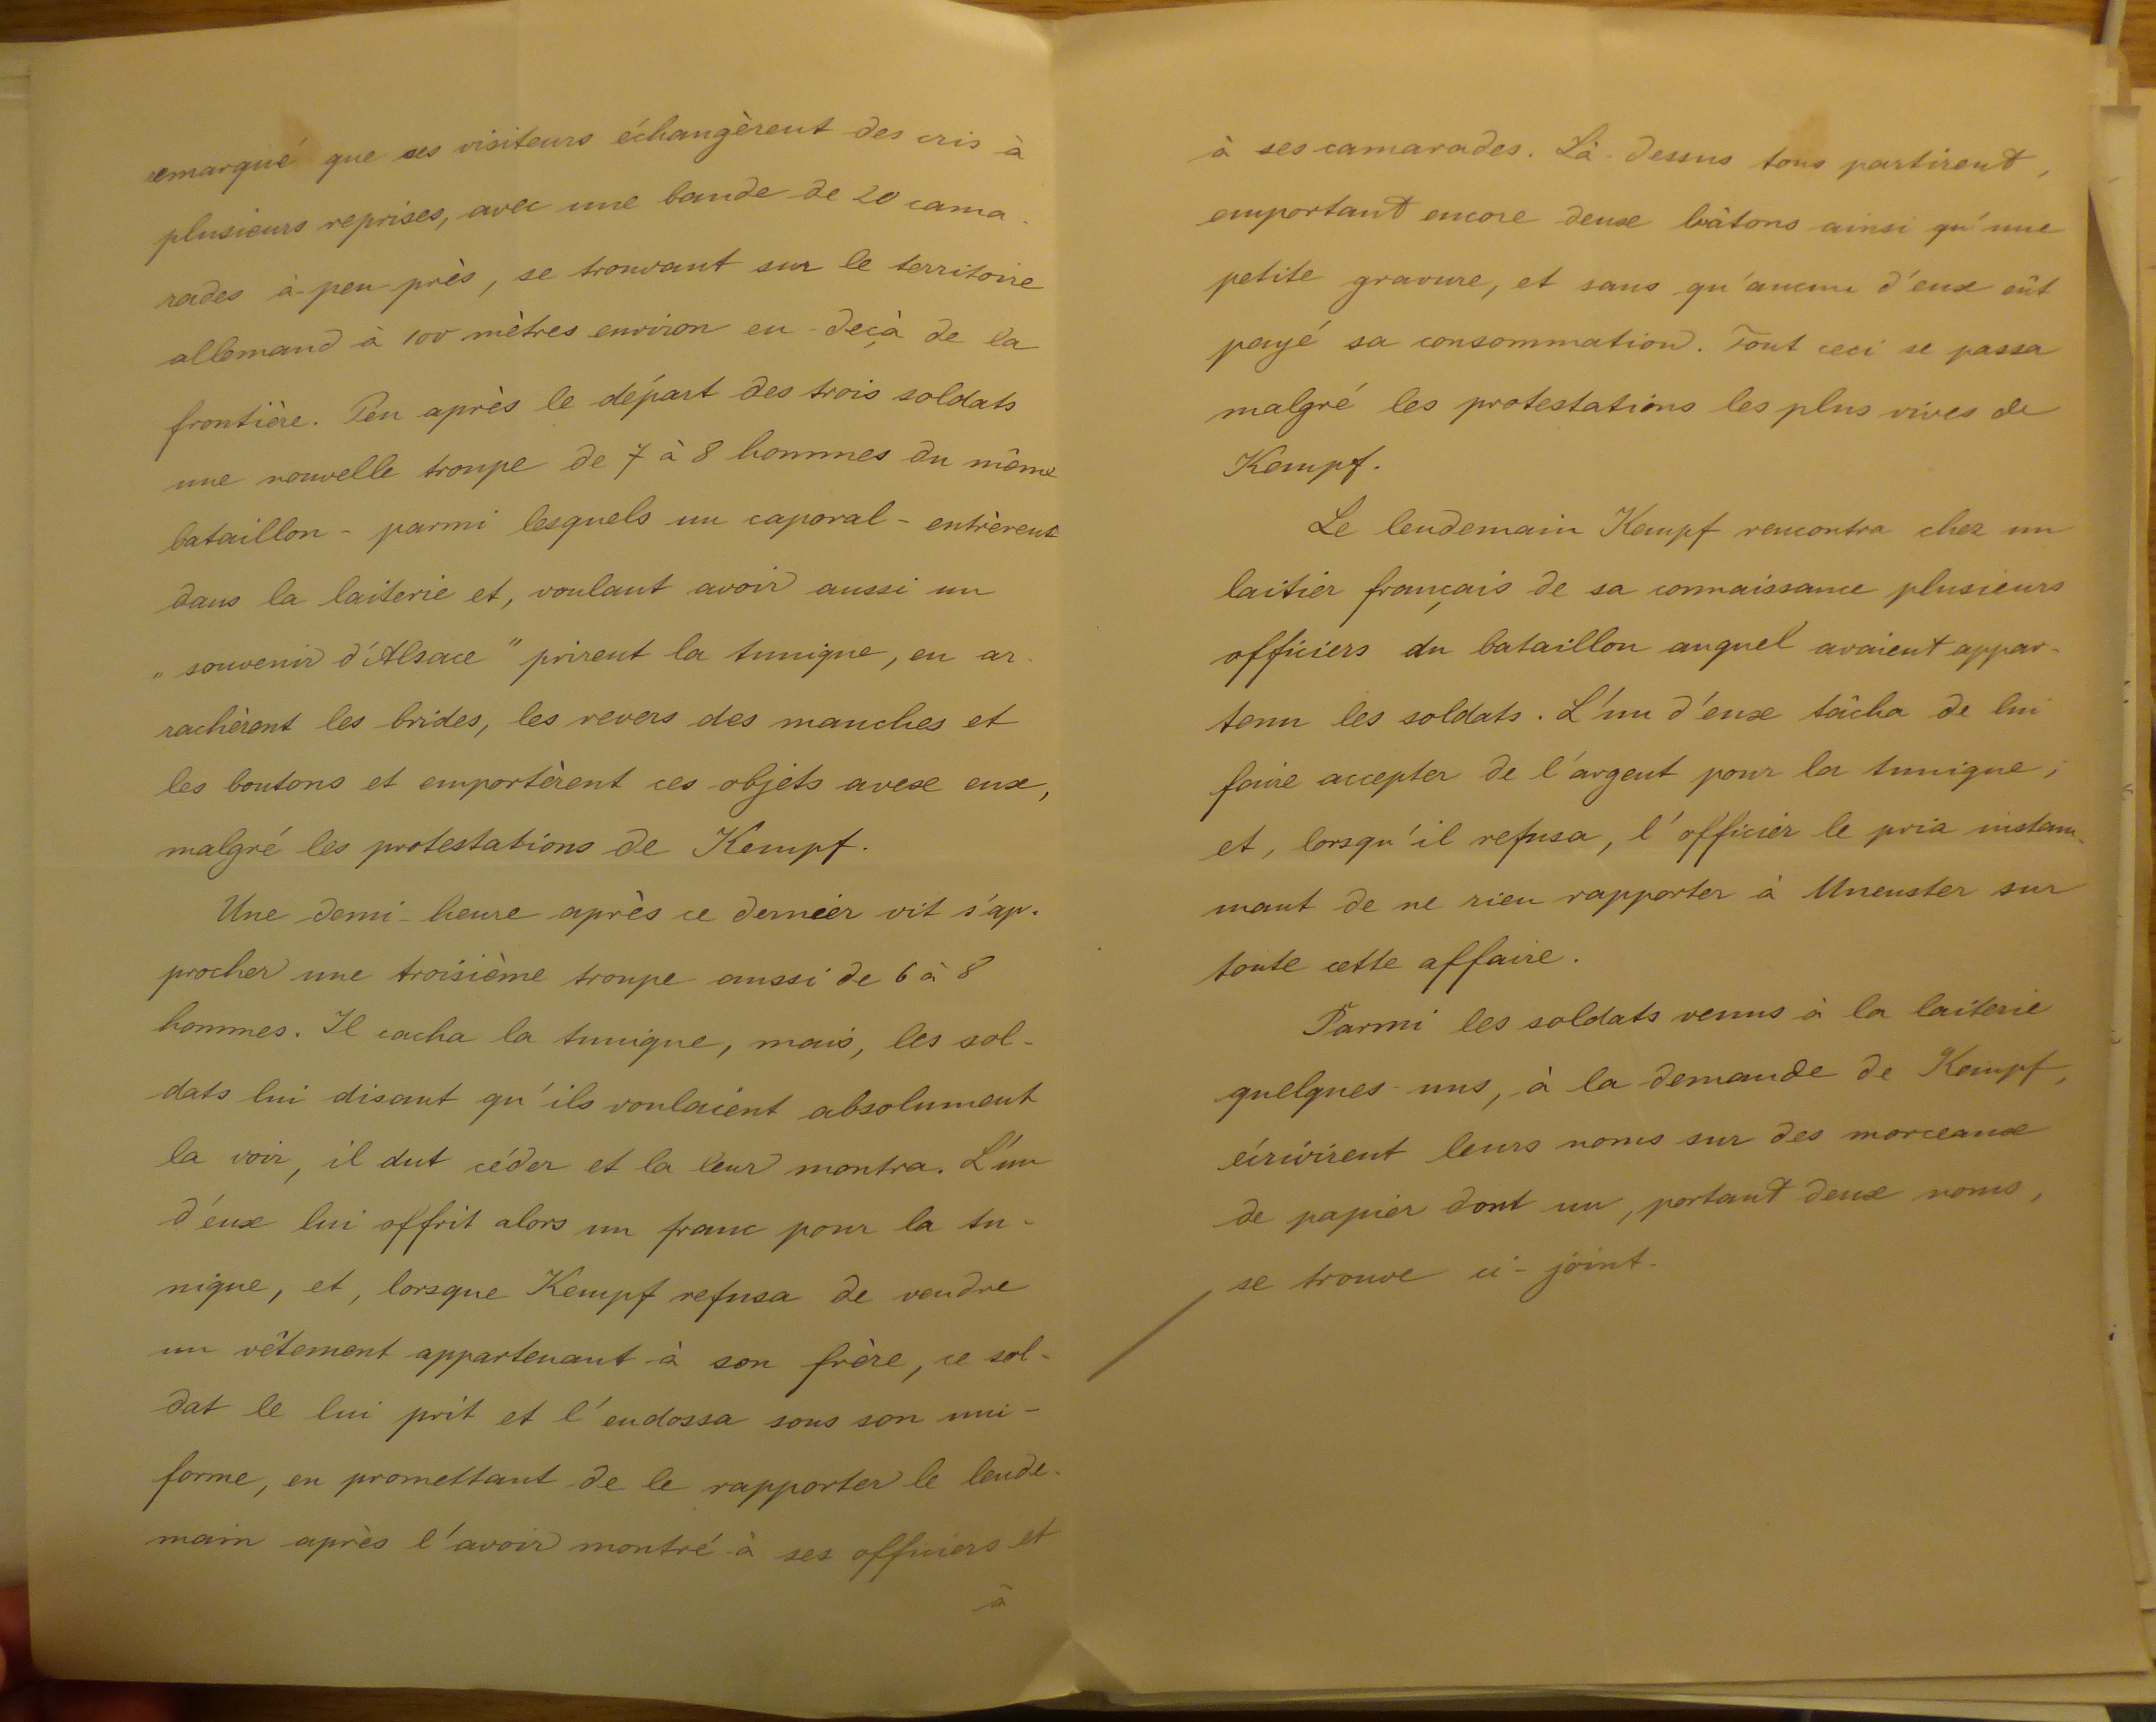 remarqué que ses visiteurs échangèrent des cris à
plusieurs reprises, avec une bande de 20 cama-
rades à-peu-près, se trouvant sur le territoire
allemand à 100 mètres environ en-deçà de la
frontière. Peu après le départ des trois soldats
une nouvelle troupe de 7 à 8 hommes du même
bataillon - parmi lesquels un caporal - entrèrent
dans la laiterie et, voulant avoir aussi un
„souvenir d'Alsace" prirent la tunique, en ar-
rachèrent les brides, les revers des manches et
les boutons et emportèrent ces objets avexe eux,
malgré les protestations de Kempf.
Une demi-heure après ce dernier vit s'ap-
procher une troisième troupe aussi de 6 à 8
hommes. Il cacha la tunique, mais, les sol-
dats lui disant qu'ils voulaient absolument
la voir, il dut céder et la leur montra. L'un
d'eux lui offrit alors un franc pour la tu-
nique, et, lorsque Kempf refusa de vendre
un vêtement appartenant à son frère, ce sol-
dat le lui prit et l'endossa sous son uni-
forme, en promettant de le rapporter le lende-
main après l'avoir montré à ses officiers et
à
à ses camarades. Là-dessus tous partirent,
emportant encore deux bâtons ainsi qu'une
petite gravure, et sans qu'aucun d'eux eût
payé sa consommation. Tout ceci se passa
malgré les protestations les plus vives de
Kempf.
Le lendemain Kempf rencontra chez un
laitier français de sa connaissance plusieurs
officiers du bataillon auquel avaient appar-
tenu les soldats. L'un d'eux tâcha de lui
faire accepter de l'argent pour la tunique;
et, lorsqu'il refusa, l'officier le pria instam-
mant de ne rien rapporter à Muenster sur
toute cette affaire.
Parmi les soldats venus à la laiterie
quelques-uns, à la demande de Kempf,
écrivirent leurs noms sur des morceaux
de papier dont un, portant deux noms,
se trouve ci-joint.